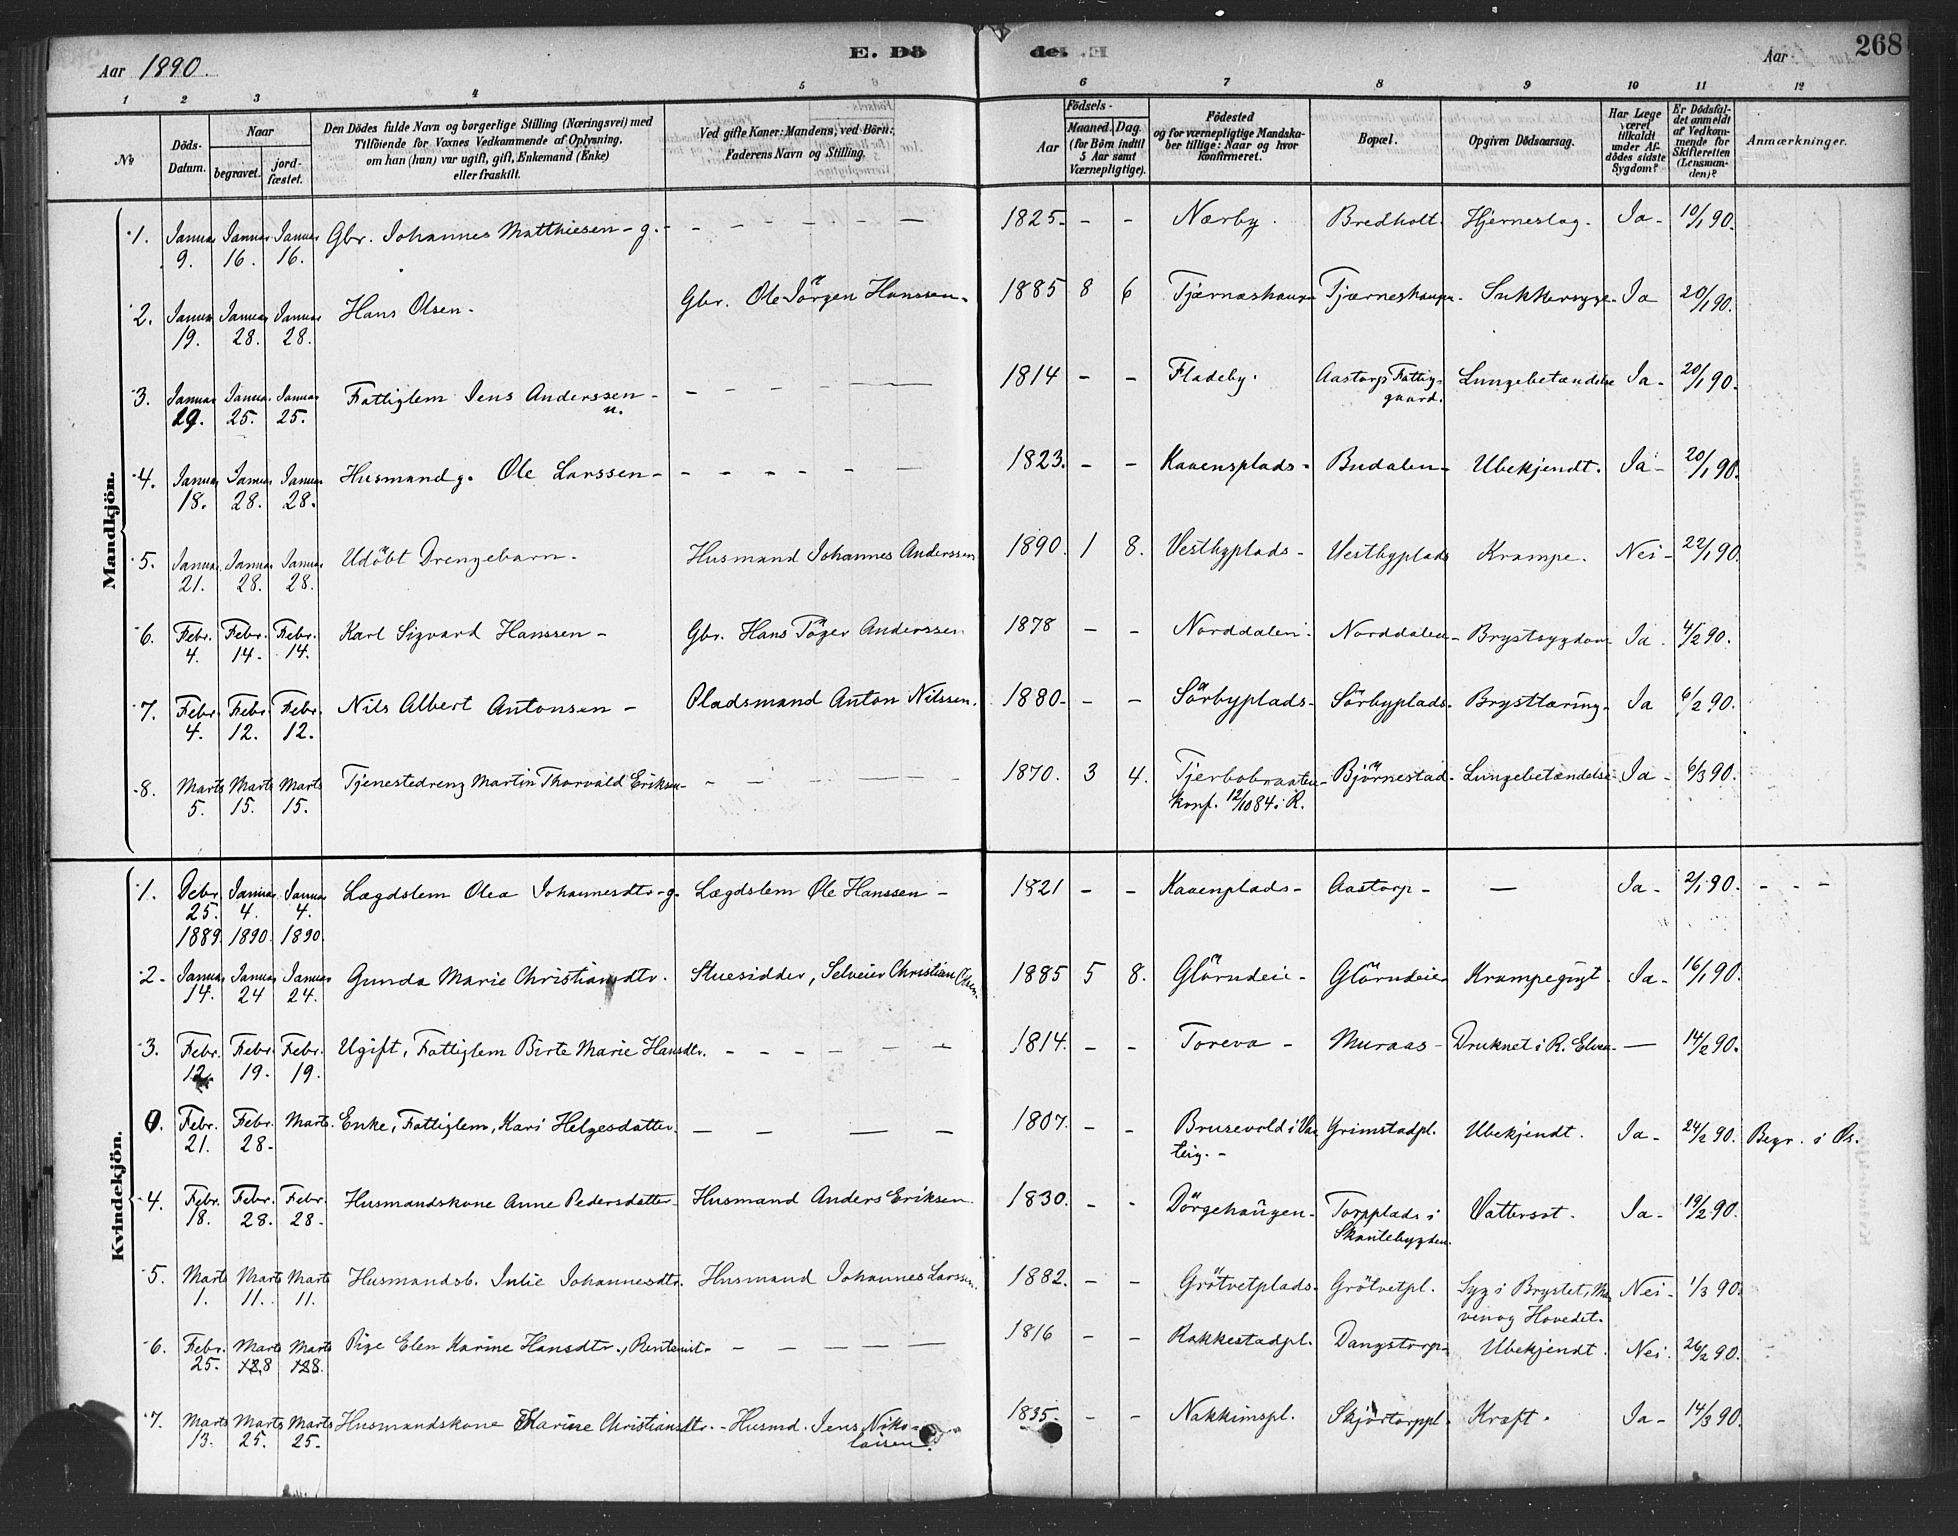 Aar 1890. E. Dö de. Aar 268
1 2 3 4 5 6 7 8 9 10 11 12
No Döds-Datum. Naar begravet. jord-fæstet. Den Dödes fulde Navn og borgerlige Stilling (Næringsvei) med Tilföiende for Voxnes Vedkommende af Oplysning, om han (hun) var ugift, gift, Enkemand (Enke) eller fraskilt. Ved gifte Koner: Mandens, ved Börn: Faderens Navn og Stilling. Födsels- Aar Maaned. Dag. (for Börn indtil 5 Aar samt Værnepligtige). Födested og for værnepligtige Mandskaber tillige: Naar og hvor konfirmeret. Bopæl. Opgiven Dödsaarsag. Har Læge været tilkaldt under Afdödes sidste Sygdom? Er Dödsfaldet anmeldt af Vedkommende for Skifteretten (Lensmanden)? Anmærkninger.
Mandkjön.
1. Januar 9. Januar 16. Januar 16. Gbr. Johannes Matthiesen - g. - - - - - - 1825. - - Nærby. Bredholt. Hjerneslag. Ja - 10/1 90.
2. Januar 19. Januar 28. Januar 28. Hans Olsen. Gbr. Ole Jörgen Hanssen. 1885 8 6 Tjærneshaugen Tjærneshaugen. Sukkersyge. Ja 20/1 90.
3. Januar 19. Januar 25. Januar 25. Fattiglem Jens Anderssen - u. - - - - - 1814 - - Fladeby. Aastorp Fattiggaard. Lungebetændelse Ja - 20/1 90.
4. Januar 18. Januar 28. Januar 28. Husmand g. Ole Larssen - - - - - - 1823. - - Kauensplads - Budalen - Ubekjendt. Ja - 20/1 90.
5. Januar 21. Januar 28. Januar 28. Udöbt Drengebarn. Husmand Johannes Anderssen 1890. 1 8. Vestbyplads - Vestbyplads Krampe. Nei - 22/1 90.
6. Febr. 4. Febr. 14. Febr. 14. Karl Sigvard Hanssen - Gbr. Hans Töger Anderssen 1878 - - Norddalen - Norddalen - Brystsygdom Ja 4/2 90.
7. Febr. 4. Febr. 12. Febr. 12. Nils Albert Antonsen - Pladsmand Anton Nilssen. 1880 - - - Sörbyplads - Sörbyplads. Brysttæring. Ja 6/2 90.
8. Marts 5. Marts 15. Marts 15. Tjenestedreng Martin Thorvald Eriksen - - - - - 1870. 3 4. Tjerbobraaten - konf. 12/10 84 i R. Björnestad - Lungebetændelse Ja - 6/3 90.
Kvindekjön.
1. Debr. 25. 1889. Januar 4. 1890. Januar 4. 1890. Lægdslem Olea Johannesdtr - g. Lægdslem Ole Hanssen - 1821 - - Kauenplads - Aastorp - — Ja - 2/1 90. - - -
2. Januar 14. Januar 24 Januar 24. Gunda Marie Christiansdtr. Stuesidder, Selveier Christian Olsen. 1885 5 8. Glörndeie - Glörndeie Krampegigt. Ja - 16/1 90.
3. Febr. 12. Febr. 19. Febr. 19. Ugift, Fattiglem Birte Marie Hansdtr. - - - - - 1814. - - Toreva - Muraas - Druknet i R. Elven - — 14/2 90.
0. Febr. 21. Febr. 28. Marts. Enke, Fattiglem, Kari Helgesdatter. - - - - 1807. - - Brusevold i Varteig. - Grimstadpl. Ubekjendt. Ja - 24/2 90. Begr. i Øs.
4. Febr. 18. Febr. 28. Febr. 28. Husmandskone Anne Pedersdatter - Husmand Anders Eriksen. 1830. - - Dörgehaugen - Torpplads i Skautebygden. Vattersot. Ja - 19/2 90.
5. Marts 1. Marts 11. Marts 11. Husmandsb. Julie Johannesdtr. Husmand Johannes Larssen. 1882. - - Grötvetplads - Grötvetpl. Syg i Brystet, Maven og Hovedet. Nei - 1/3 90.
6. Febr. 25. Marts 8 Marts 8. Pige Elen Karine Hansdtr., Rentenist. - - - - - 1816 - - Rakkestadpl. Dangstorp - Ubekjendt. Nei. 26/2 90.
7. Marts 13. Marts 25. Marts 25. Husmandskone Karine Christiansdtr. - Husmd. Jens Nikolaisen. 1835. - - Nakkimspl. Skjörtorppl. Kræft. Ja - 14/3 90.